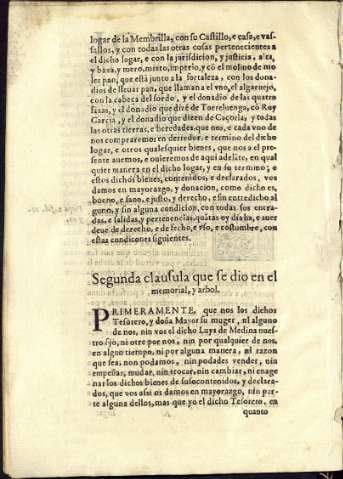 logar de la Membrilla, con su Castillo, e casa, e vas-
sallos, y con todas las otras cosas pertenecientes a
el dicho logar, e con la jurisdicion, y justicia, alta,
y baxa, y mero, misto, imperio, y cõ el molino de mo-
ler pan, que está junto a la fortaleza, con los dona-
dios de lleuar pan, que llaman a el vno, el algarnejo,
con la cabeça del sordo, y el donadio de las quatro
hazas, y el donadio que dizẽ de Torreluenga, cõ Ruy
Garcia, y el donadio que dizen de Caçorla, y todas
las otras tierras, e heredades, que nos, e cada vno de
nos compraremos en derredor, e termino del dicho
logar, e otros qualesquier bienes, que nos a el pre-
sente auemos, e ouieremos de aqui adelãte, en qual
quier manera en el dicho logar, y en su termino; e
estos dichos bienes, contenidos, e declarados, vos
damos en mayorazgo, y donacion, como dicho es,
bueno, e sano, e justo, e derecho, e sin entredicho al
guno, y sin alguna condicion, con todas sus entra-
das, e salidas, y pertenencias, quãtas oy dia ha, e auer
deue de derecho, e de fecho, e vso, e costumbre, con
estas condiciones siguientes.
Segunda clausula que se dio en el
memorial, y arbol.
PRIMERAMENTE, que nos los dichos
Tesorero, y doña Mayor su muger, ni alguno
de nos, nin vos el dicho Luys de Medina nues-
tro fijo, ni otre por nos, nin por qualquier de nos,
en algun tiempo, ni por alguna manera, ni razon
que sea, non podamos, nin podades vender, nin
empeñar, mudar, nin trocar, nin cambiar, ni enage
nar los dichos bienes de suso contenidos, y declara-
dos, que vos assi os damos en mayorazgo, nin par-
te alguna dellos, mas que yo el dicho Tesorero, en
quanto